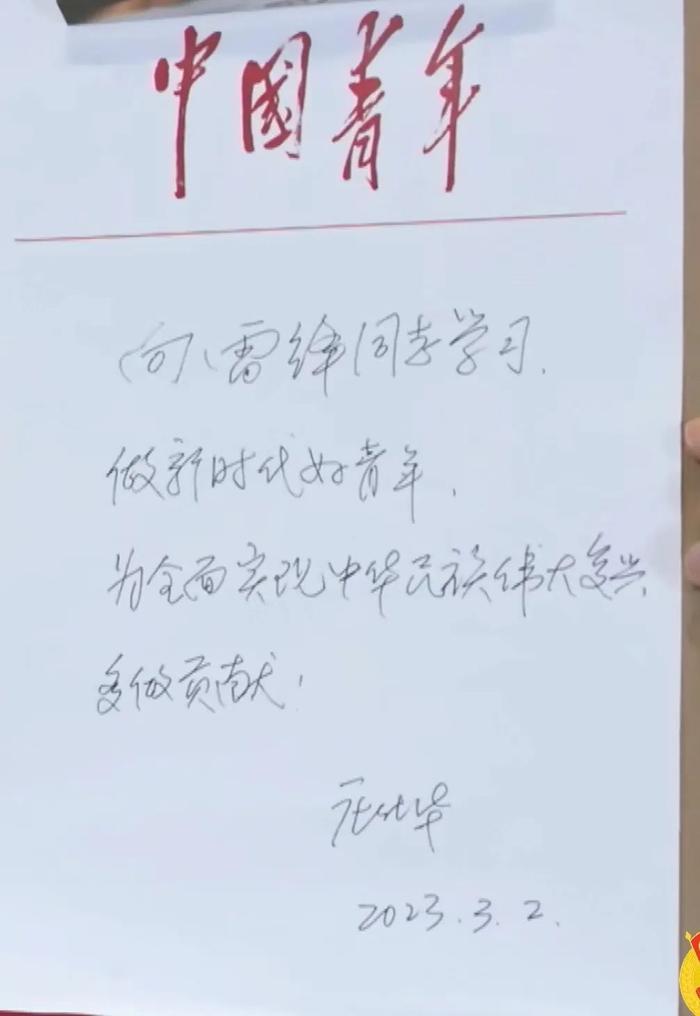 中国青年
向雷锋同志学习、
做新时代好青年、
为全面实现中华民族伟大复兴
多做贡献！
庄仕华
2023.3.2.